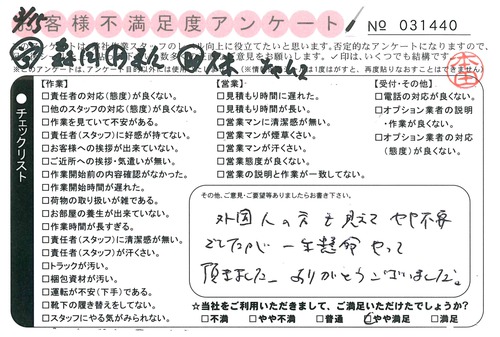 お客様不満足度アンケート
№ 031440
【作業】
□責任者の対応(態度)が良くない。
□他のスタッフの対応(態度)が良くない。
□作業を見ていて不安がある。
□責任者(スタッフ)に好感が持てない。
□お客様への挨拶が出来ていない。
□ご近所への挨拶・気遣いが無い。
□作業開始前の内容確認がなかった。
□作業開始時間が遅れた。
□荷物の取り扱いが雑である。
□お部屋の養生が出来ていない。
□作業時間が長すぎる。
□責任者(スタッフ)に清潔感が無い。
□責任者(スタッフ)が汗くさい。
□トラックが汚い。
□梱包資材が汚い。
□運転が不安(下手)である。
□靴下の履き替えをしてない。
□スタッフにやる気がみられない。
【営業】
□見積もり時間に遅れた。
□見積もり時間が長い。
□営業マンに清潔感が無い。
□営業マンが煙草くさい。
□営業マンが汗くさい。
□営業態度が良くない。
□営業の説明と作業が一致してない。
【受付・その他】
□電話の対応が良くない。
□オプション業者の説明
・作業が良くない。
□オプション業者の対応
(態度)が良くない。
●チェックリスト
その他、ご意見・ご要望等ありましたらお書き下さい。
外国人の方も見えて やや不安
でしたが 一生懸命 やって
頂きました。ありがとうございました。
☆当社をご利用いただきまして、ご満足いただけたでしょうか?
□不満 □やや不満 □普通 □やや満足 □満足